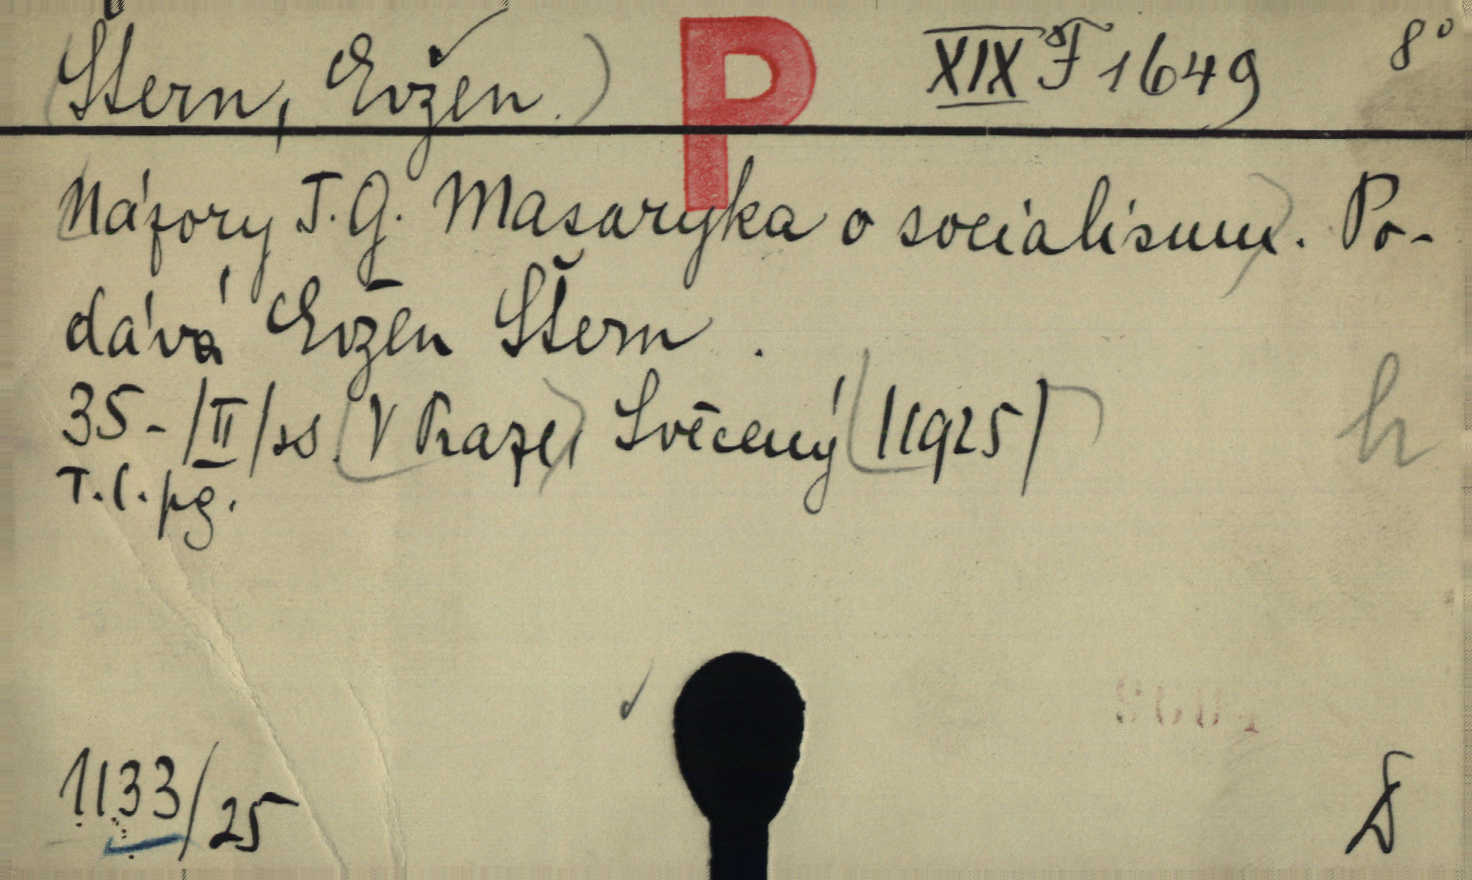 (Štern, Evžen.) P XIX F 1649 8°
Názory T. G. Masaryka o socialismu. Po-
dává Evžen Štern.
35-/II/ss. V Praze, Svěcený /1925/
T.(.pg. h
1133/25